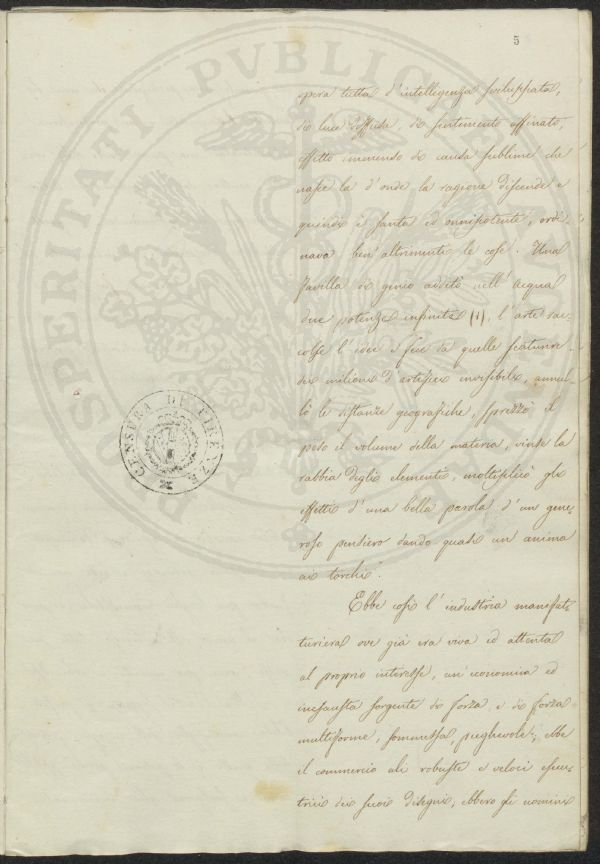 5
opera tutta d'intelligenza sviluppata,
di luce diffusa, di sentimento affinato,
effetto immenso di causa sublime che
nasce la d'onde la ragione discende e
quindi è santa ed onnipotente, ordi-
nava ben' altrimenti le cose. Una
favilla di genio additò nell' Acqua
due potenze infinite (1), l'arte rac-
colse l'idea e fece da quelle scaturire
dei milioni d'artefici invisibili, annul-
lò le distanze geografiche, sprezzò il
peso il volume della materia, vinse la
rabbia degli elementi, moltiplicò gli
effetti d'una bella parola d'un gene-
roso pensiero dando quasi un' anima
ai torchi.
Ebbe così l'industria manifat-
turiera ove già era viva ed attenta
al proprio interesse, un' economica ed
inesausta sorgente di forza, e di forza
multiforme, sommessa, pieghevole; ebbe
il commercio ali robuste e veloci esecu-
trici dei suoi disegni, ebbero gli uomini
CENSURA DI FIRENZE
PROSPERITATI PUBLICAE